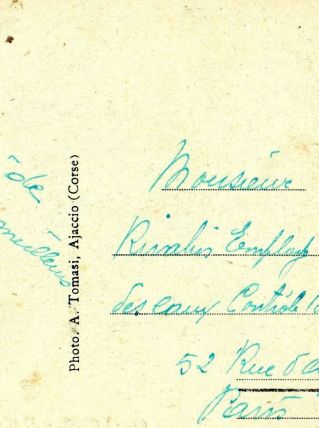 de
meilleurs
Photo. A. Tomasi, Ajaccio (Corse)
Monsieur
Employ
des eaux Contrôle
52 Rue
Paris